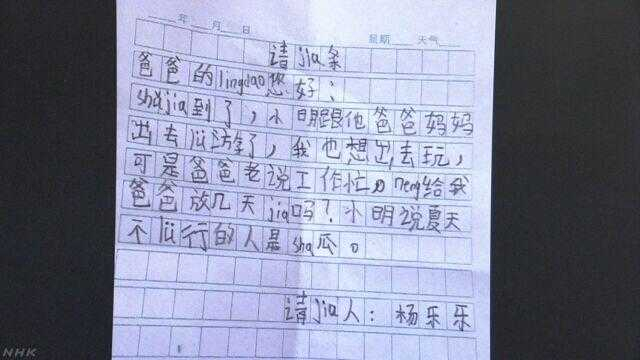 年 月 日 星期 天气
请jia条
爸爸的lingdao您好：
shǔjia到了，小明跟他爸爸妈妈
出去lü访学了，我也想出去玩，
可是爸爸老说工作忙，neng给我
爸爸放几天jia吗？小明说夏天
不lü行的人是sha瓜。
请jia人：杨乐乐
NHK